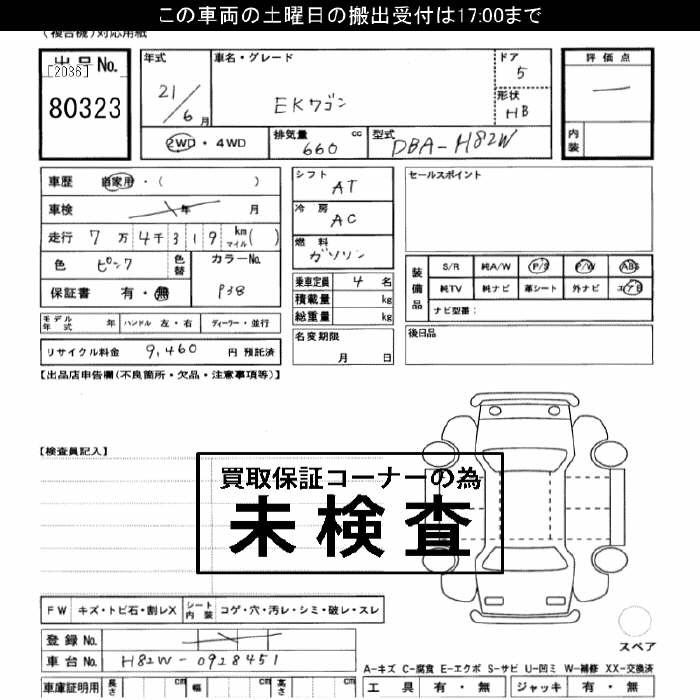 この車両の土曜日の搬出受付は17:00まで
(複合機)対応用紙
出品No.
[2036]
80323
年式
21/6月
車名・グレード
EKワゴン
ドア
5
形状
HB
評価点
ー
内装
2WD・4WD
排気量
660 cc
型式
DBA-H82W
車歴 自家用・( )
車検 年 月
走行 7万4千319 km マイル( )
色 ピンク 色替
カラーNo.
P38
保証書 有・無
シフト
AT
冷房
AC
燃料
ガソリン
乗車定員 4名
積載量 kg
総重量 kg
セールスポイント
装備品
S/R 純A/W P/S P/W ABS
純TV 純ナビ 革シート 外ナビ エアB
ナビ型番:
モデル年式 年 ハンドル 左・右 ディーラー・並行
リサイクル料金 9,460 円 預託済
名変期限
月 日
後日品
【出品店申告欄(不良箇所・欠品・注意事項等)】
【検査員記入】
買取保証コーナーの為
未検査
FW キズ・トビ石・割レX シート内装 コゲ・穴・汚レ・シミ・破レ・スレ
登録No.
車台No. H82W-0928451
スペア
A-キズ C-腐食 E-エクボ S-サビ U-凹ミ W-補修 XX-交換済
車庫証明用 長さ cm 幅 cm 高さ cm
工具 有・無 ジャッキ 有・無